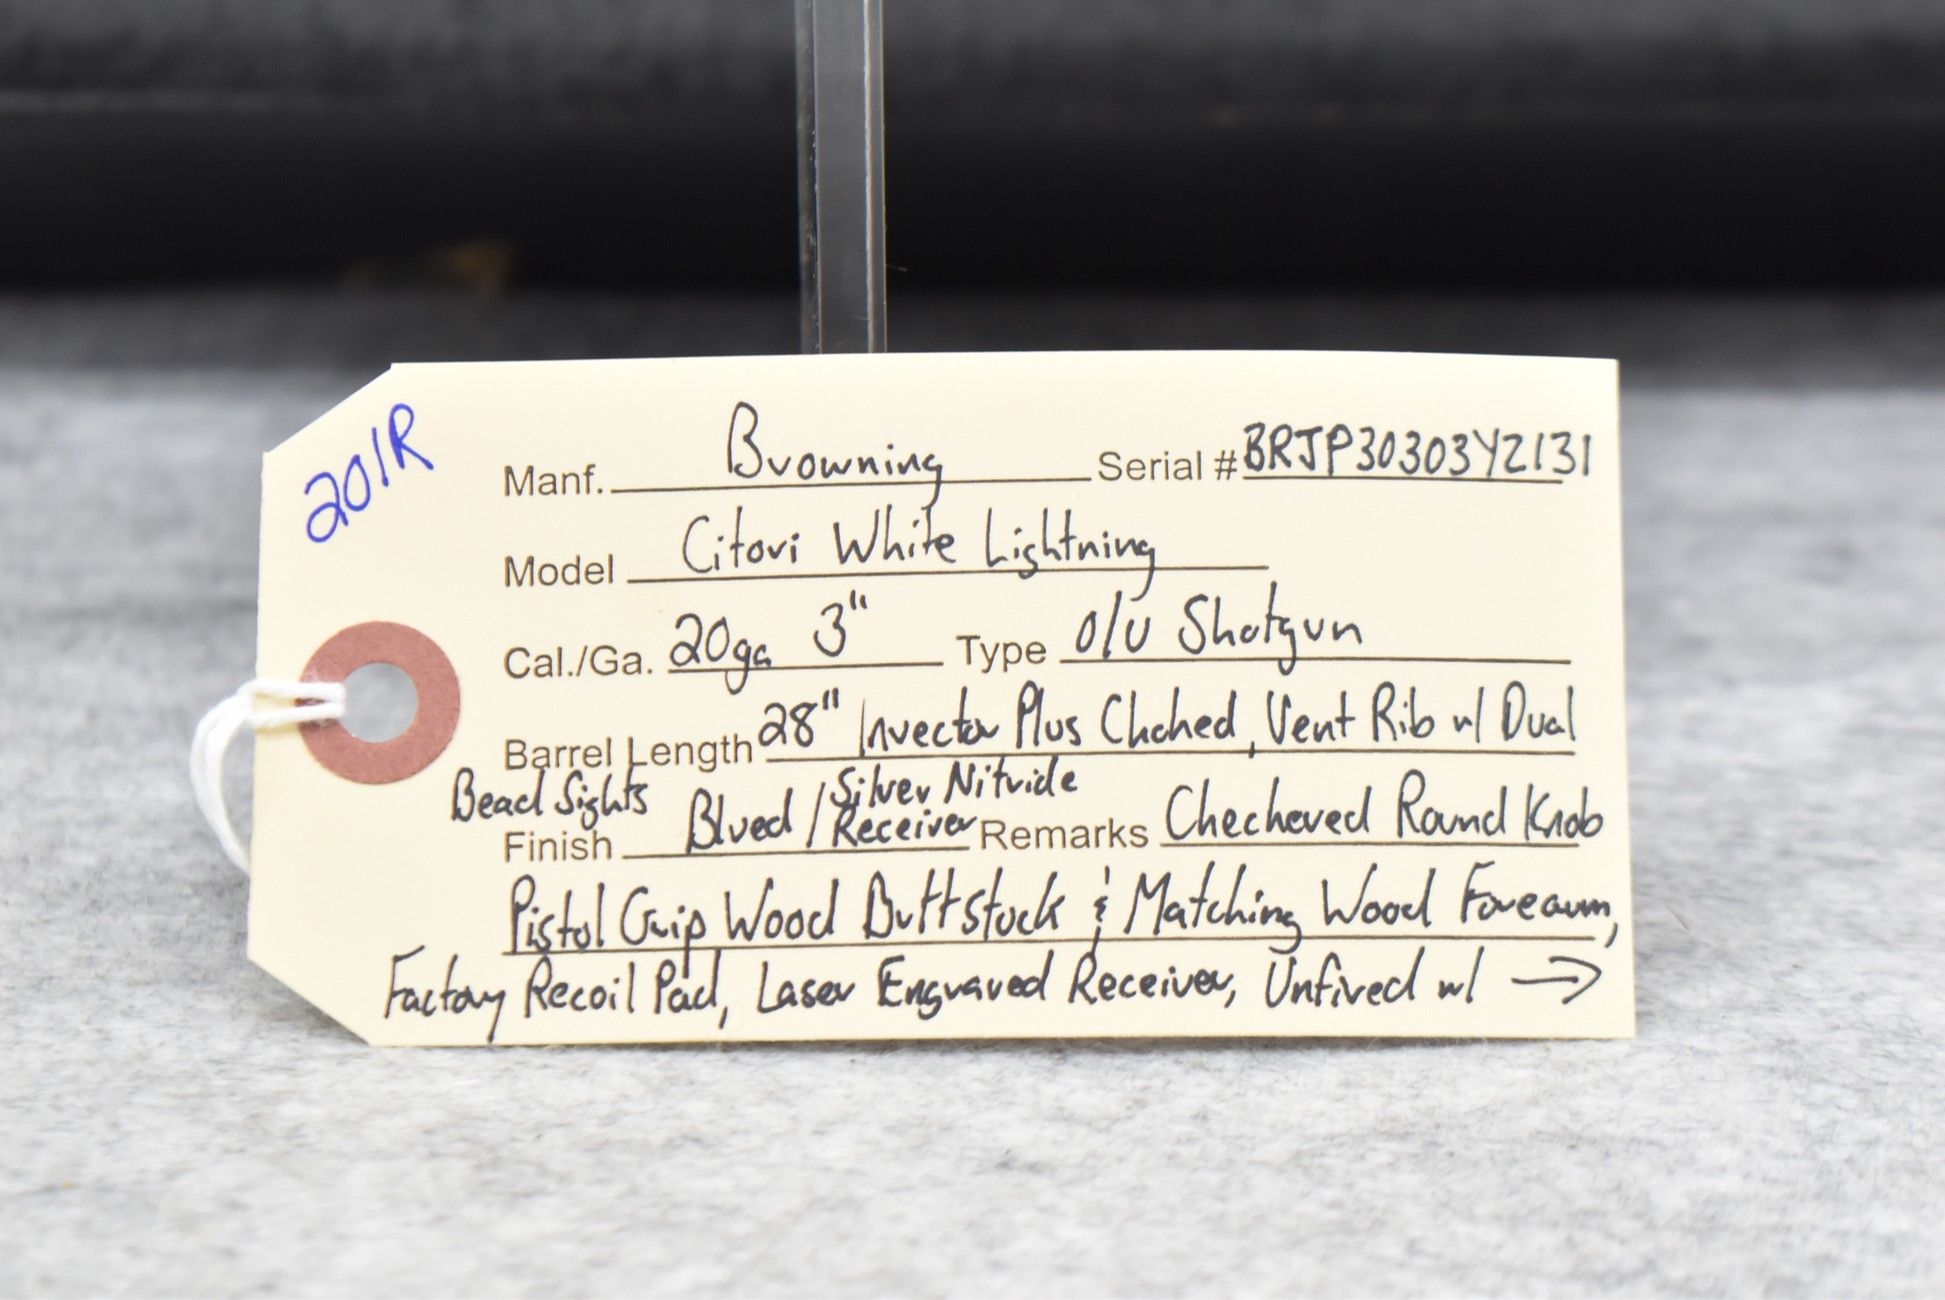 201R
Manf. Browning Serial # BRJP30303YZ131
Model Citori White Lightning
Cal./Ga. 20ga 3" Type O/U Shotgun
Barrel Length 28" Invector Plus Choked, Vent Rib w/ Dual
Bead Sights
Finish Blued / Silver Nitride Receiver Remarks Checkered Round Knob
Pistol Grip Wood Buttstock & Matching Wood Forearm,
Factory Recoil Pad, Laser Engraved Receiver, Unfired w/ →